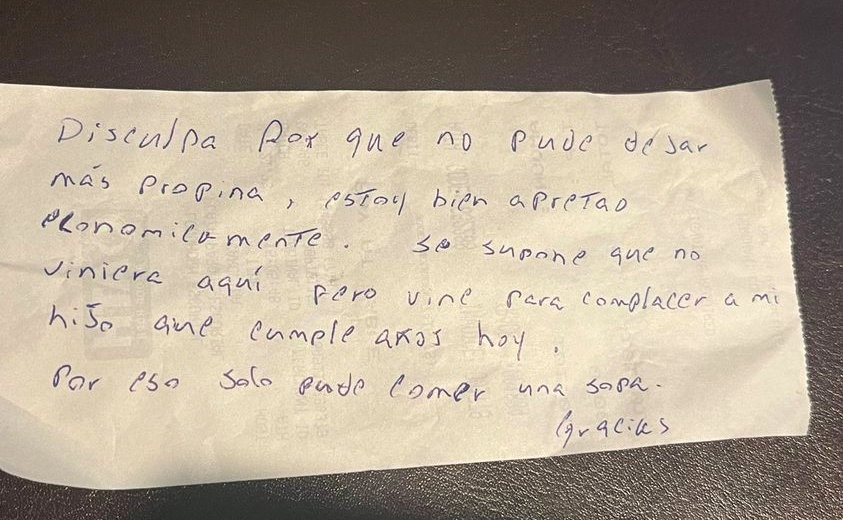 Disculpa Por que no pude dejar
más propina, estoy bien apretao
economicamente. se supone que no
viniera aquí pero vine para complacer a mi
hijo que cumple años hoy.
Por eso solo pude comer una sopa.
Gracias